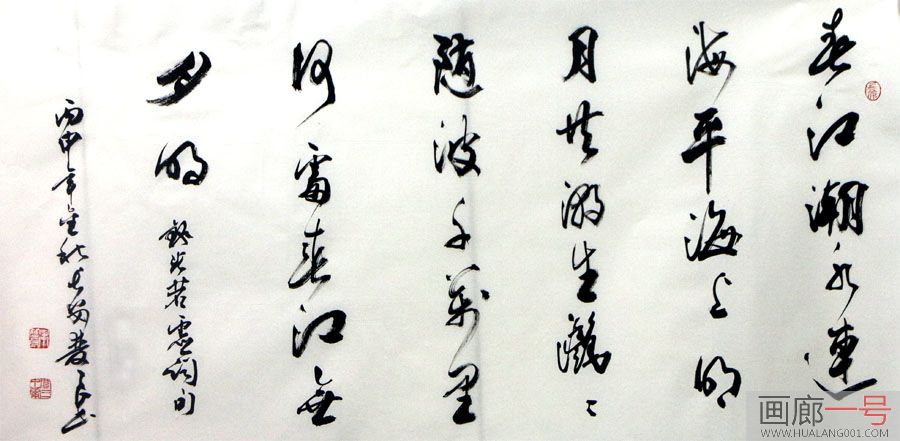 春江潮水連
海平海上明
月共潮生灩〻
隨波千萬里
何處春江無
月明
錄張若虛詩句
丙申年金秋
書
画廊一号
WWW.HUALANG001.COM